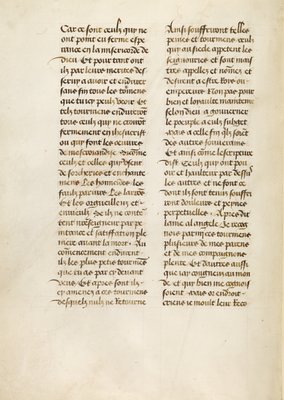 Car ce sont ceulx qui ne
ont point eu ferme espe
rance en la misericorde de
dieu. Et pour tant ont
ilz par leurs merites des
servy a avoir et endurer
sans fin tous les tourmens
que tu cy peulx veoir. Et
telz tourmens endureront
tous ceulx qui ne croient
fermement en ihesucrist
ou qui font les oeuvres
de mescreandise. Comme
ceulx et celles qui usent
de sorcheries et enchante
mens. Les homicides. les
faulx pariures. Les larrons
Et les orgueilleux et
envieulx. Se ilz ne conte
tent
par pe
nitance et satisffation ple
niere avant la mort. Au
comencement endurent
ilz les plus petis tourmens
que tu as par cy devant
veus. Et apres sont ilz
cy amenez a ces tourmens
desquelz nulz ne Retourne
Ainsi souffreront telles
peines et tourmens ceulx
qui au siecle appetent les
seignouries et sont mais
tres appellez et nomez et
desirent a estre Roix ou
empereurs Non pas pour
bien et loyaulte maintenir
selon dieu a gouverner
le peuple a eulx subget
Mais a celle fin quilz soient
des autres souverains
Et ainsi come lescripture
dist. Ceulx qui ont po
oir et haulteur par dessus
les autres et ne font ce
dont ilz font seront souffrir
douleurs et peynes
perpetuelles. Apres dit
lame a langele. Je recog
nois parmi ces tourmens
pluseurs de mes parens
et de mes compagnons
plente. Et dautres aussi
que iay congneu au mon
de et qui bien me cognois
soient. Mais or endroit
je moult leur Reco